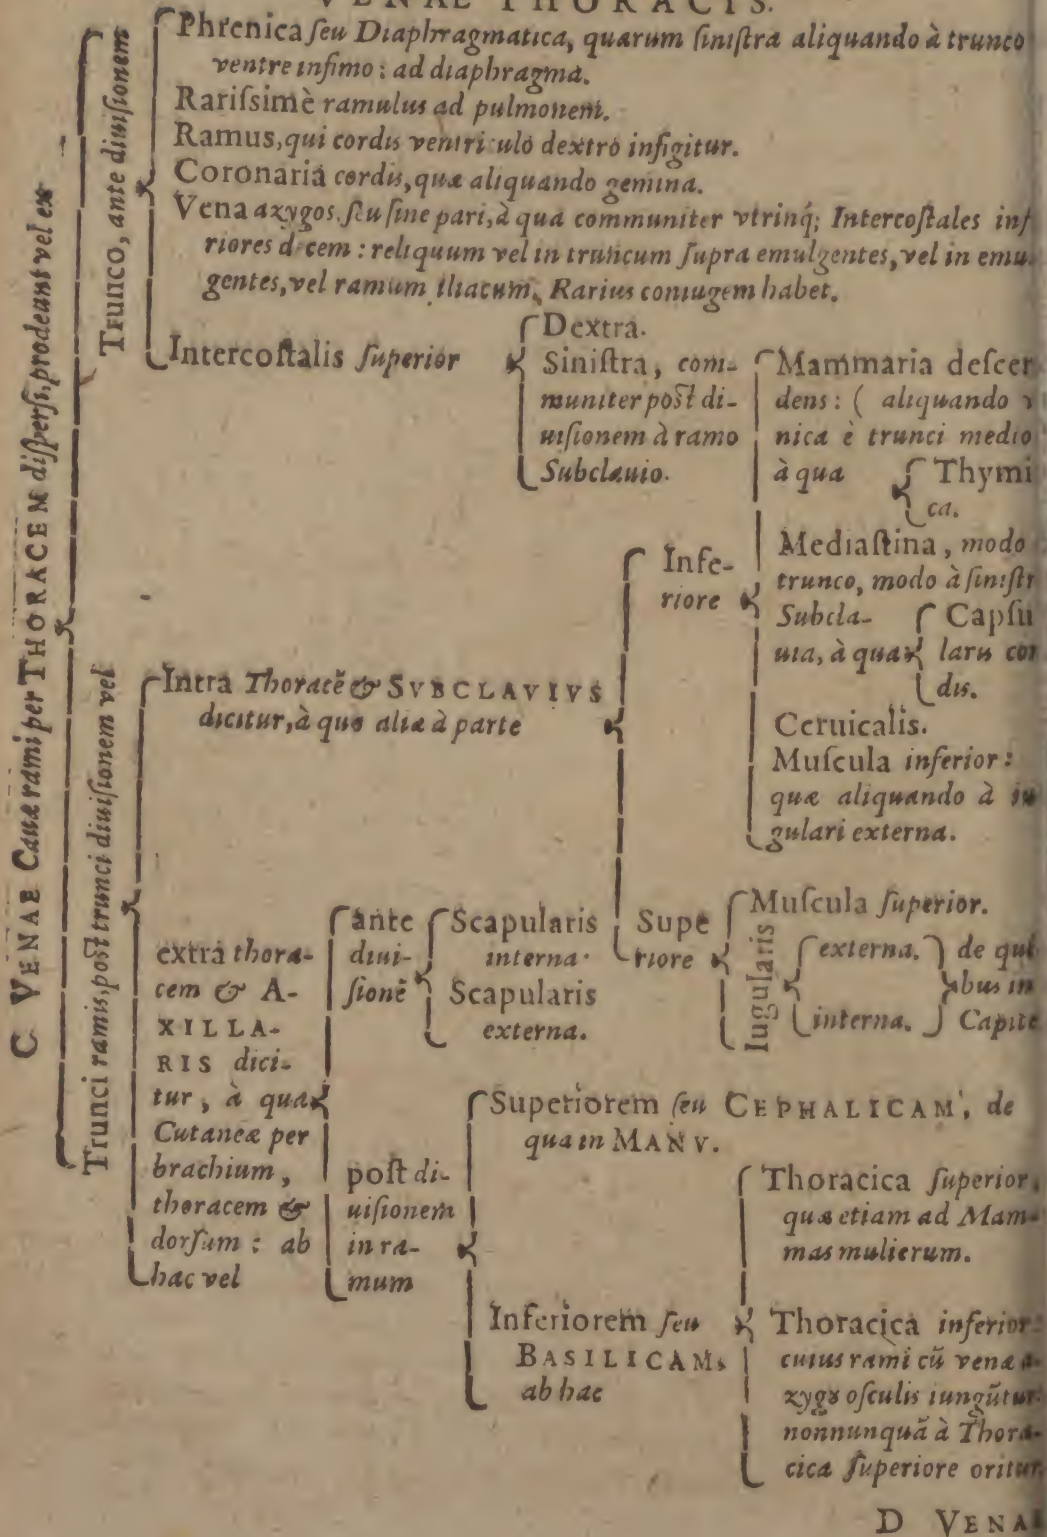 VENAE THORACIS.
C VENAE Cauæ rami per THORACEM diſperſi, prodeunt vel ex
Trunco, ante diuiſionem
Phrenica ſeu Diaphragmatica, quarum ſiniſtra aliquando à trunco
ventre infimo: ad diaphragma.
Rariſsimè ramulus ad pulmonem.
Ramus, qui cordis ventriculo dextro infigitur.
Coronaria cordis, quæ aliquando gemina.
Vena azygos. ſeu ſine pari, à qua communiter vtrinq; Intercoſtales inf
riores decem: reliquum vel in truncum ſupra emulgentes, vel in emu-
gentes, vel ramum iliacum. Rarius coniugem habet.
Intercoſtalis ſuperior
Dextra.
Siniſtra, com-
muniter poſt di-
uiſionem à ramo
Subclauio.
Trunci ramis, poſt trunci diuiſionem vel
Intra Thoracẽ & SVBCLAVIVS
dicitur, à quo aliæ à parte
Infe-
riore
Mammaria deſcen
dens: ( aliquando v
nica è trunci medio
à qua
Thymi
ca.
Mediaſtina, modo
trunco, modo à ſiniſtr
Subcla-
uia, à qua
Capſu
laris cor
dis.
Ceruicalis.
Muſcula inferior:
quæ aliquando à iu
gulari externa.
Supe
riore
Muſcula ſuperior.
Iugularis
externa.
interna.
de qui
bus in
Capite
extra thora-
cem & A-
XILLA-
RIS dici-
tur, à qua
Cutaneæ per
brachium,
thoracem &
dorſum: ab
hac vel
ante
diui-
ſionẽ
Scapularis
interna.
Scapularis
externa.
poſt di-
uiſionem
in ra-
mum
Superiorem ſeu CEPHALICAM, de
qua in MANV.
Inferiorem ſeu
BASILICAM,
ab hac
Thoracica ſuperior,
quæ etiam ad Mam-
mas mulierum.
Thoracica inferior:
cuius rami cũ venæ a-
zygȣ oſculis iungũtur:
nonnunquã à Thora-
cica ſuperiore oritur.
D VENAE